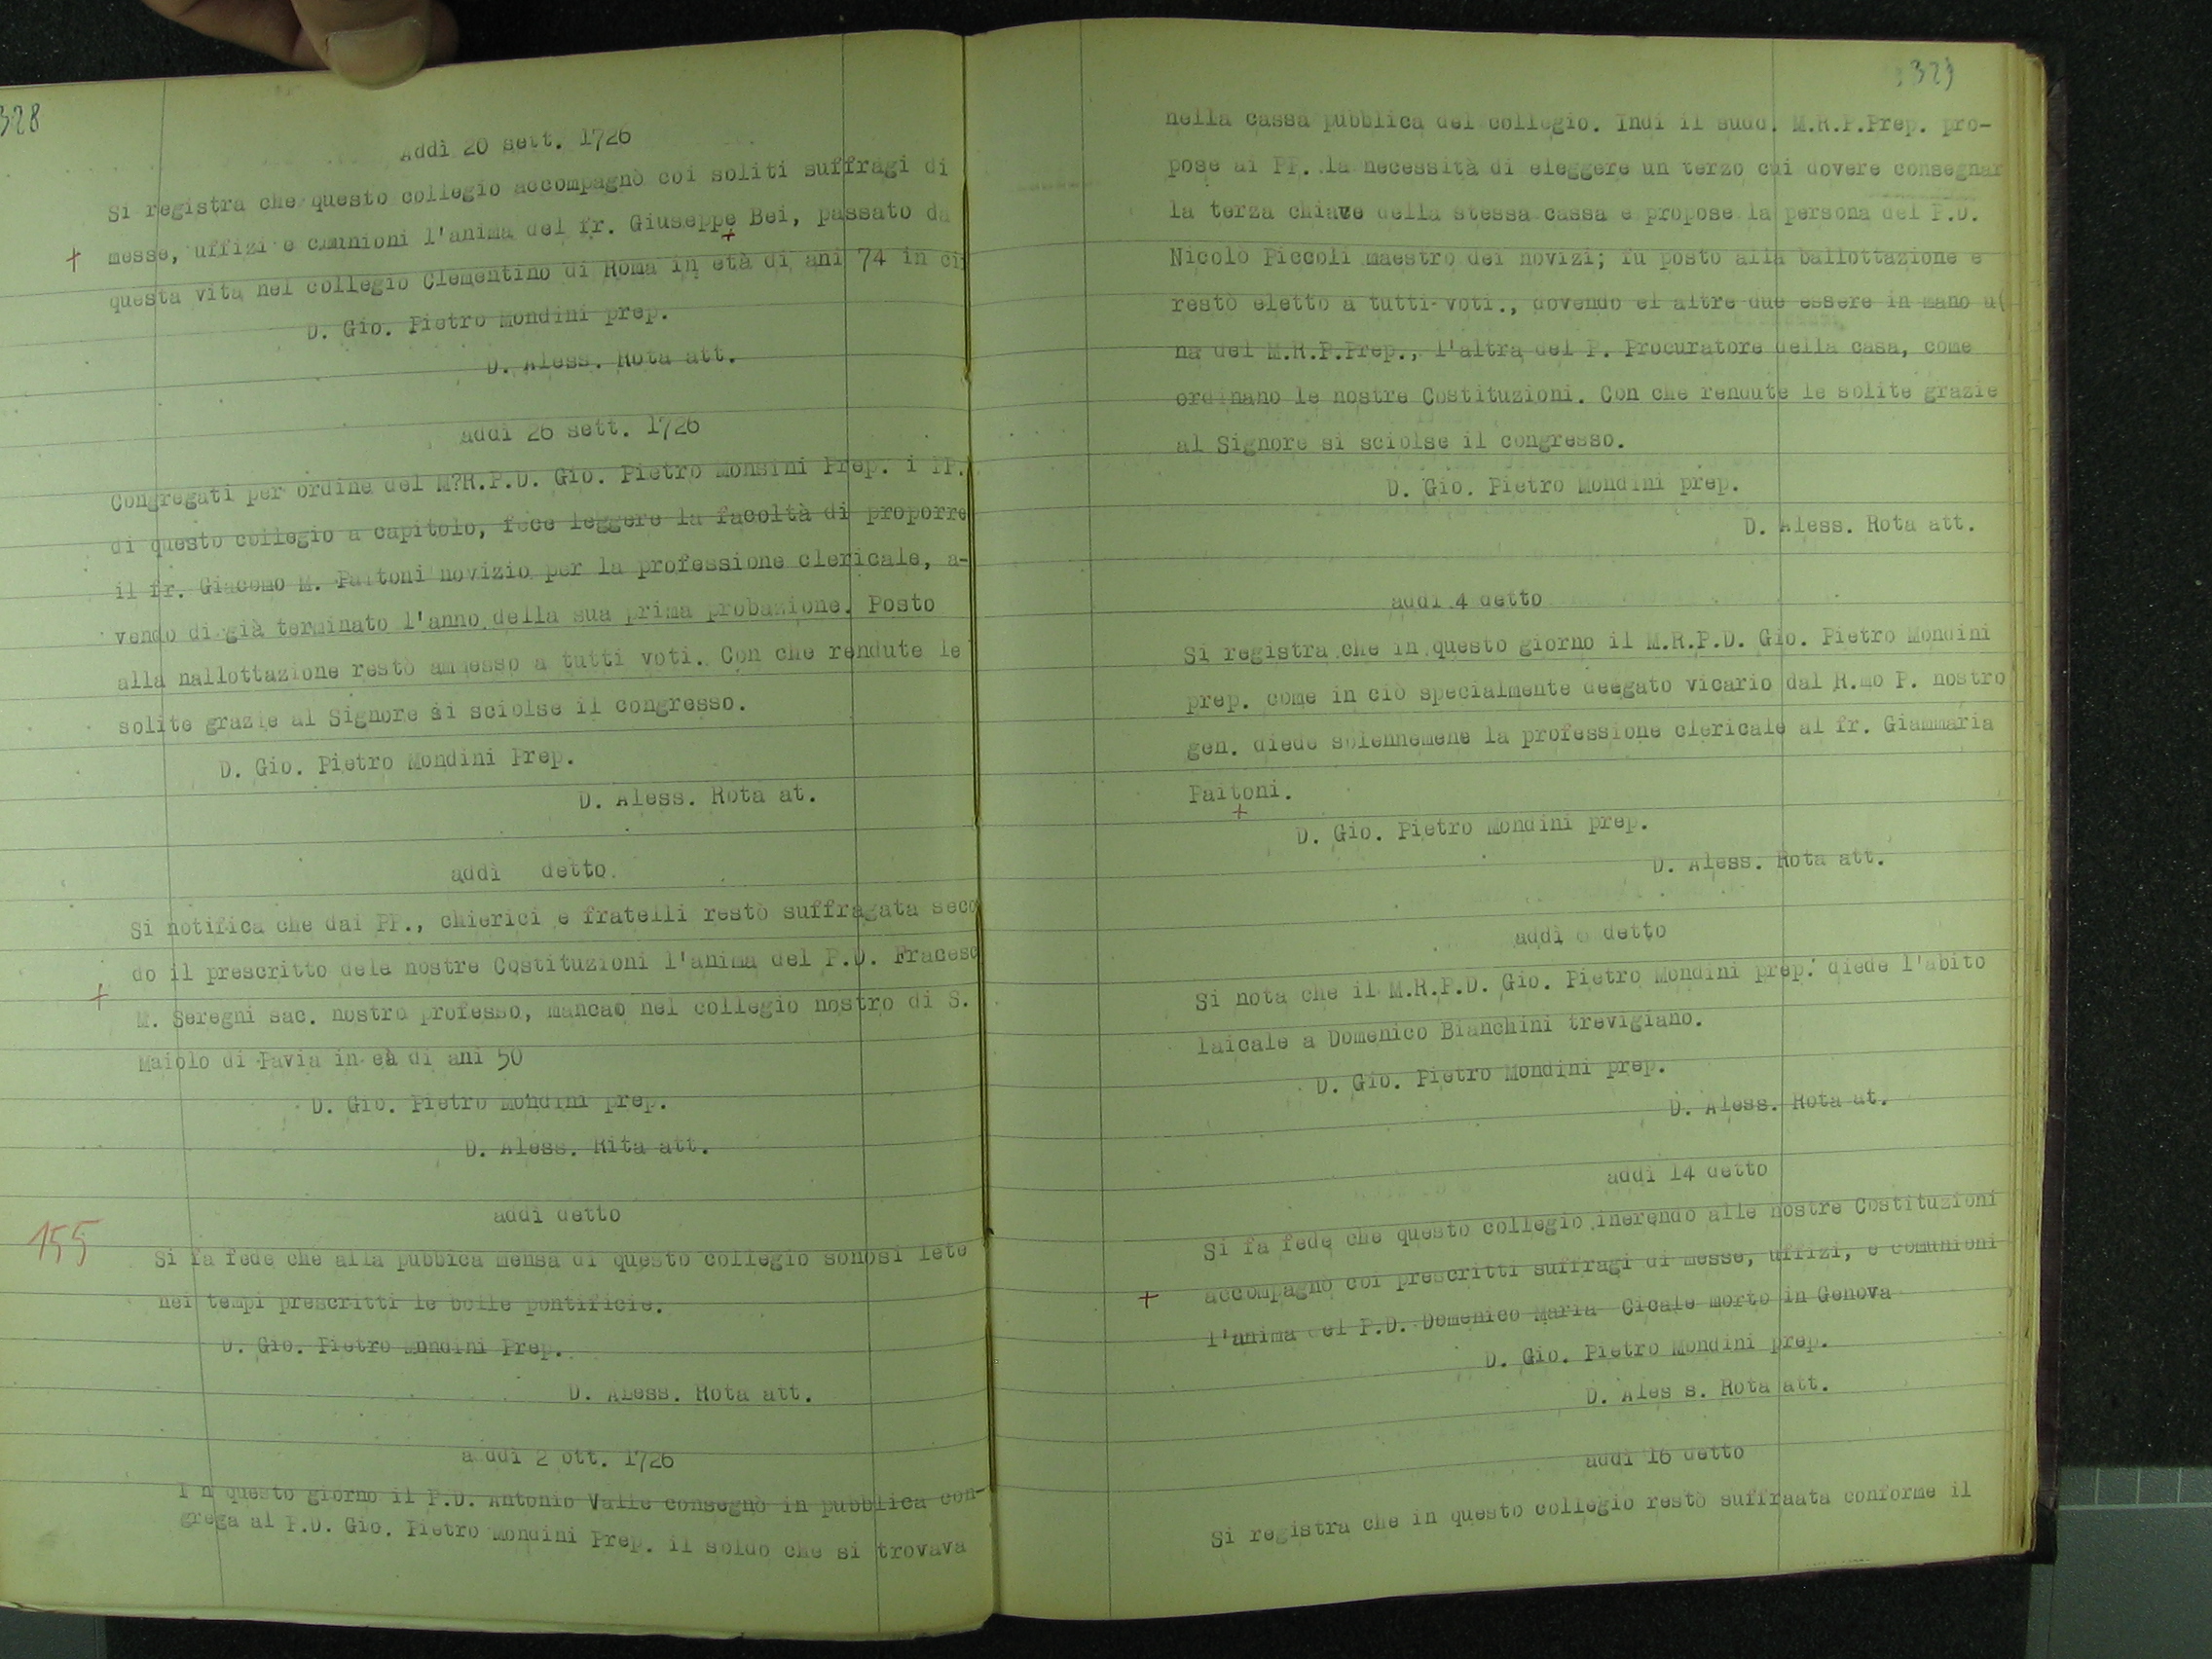 328
Addì 20 sett. 1726
Si registra che questo collegio accompagnò coi soliti suffragi di
messe, uffizi e cmunioni l'anima del fr. Giuseppe Bei, passato da
questa vita nel collegio Clementino di Roma in età di ani 74 in ci
D. Gio. Pietro Mondini prep.
D. Aless. Rota att.
addì 26 sett. 1726
Congregati per ordine del M?R.P.D. Gio. Pietro Monsini Prep. i PP.
di questo collegio a capitolo, fece leggere la facoltà di proporre
il fr. Giacomo M. Paitoni novizio per la professione clericale, a-
vendo di già terminato l'anno della sua prima probazione. Posto
alla nallottazione restò ammesso a tutti voti. Con che rendute le
solite grazie al Signore si sciolse il congresso.
D. Gio. Pietro Mondini Prep.
D. Aless. Rota at.
addì detto.
Si notifica che dai PP., chierici e fratelli restò suffragata seco
do il prescritto dele nostre Costituzioni l'anima del P.D. Fracesc
M. Seregni sac. nostro professo, mancao nel collegio nostro di S.
Maiolo di Pavia in eà di ani 50
D. Gio. Pietro Mondini prep.
D. Aless. Rita att.
addì detto
155
Si fa fede che alla pubbica mensa di questo collegio sonosi lete
nei tempi prescritti le bolle pontificie.
D. Gio. Pietro Mondini Prep.
D. Aless. Rota att.
a ddì 2 ott. 1726
I n questo giorno il P.D. Antonio Valle consegnò in pubblica con-
grega al P.D. Gio. Pietro Mondini Prep. il soldo che si trovava
329
nella cassa pubblica del collegio. Indi il sudd. M.R.P.Prep. pro-
pose ai PP. la necessità di eleggere un terzo cui dovere consegnar
la terza chiave della stessa cassa e propose la persona del P.D.
Nicolò Piccoli maestro dei novizi; fu posto alla ballottazione e
restò eletto a tutti voti., dovendo el altre due essere in mano u(
na del M.R.P.Prep., l'altra del P. Procuratore della casa, come
ordinano le nostre Costituzioni. Con che rendute le solite grazie
al Signore si sciolse il congresso.
D. Gio. Pietro Mondini prep.
D. Aless. Rota att.
addì 4 detto
Si registra che in questo giorno il M.R.P.D. Gio. Pietro Mondini
prep. come in ciò specialmente deegato vicario dal R.mo P. nostro
gen. diede solennemene la professione clericale al fr. Giammaria
Paitoni.
D. Gio. Pietro Mondini prep.
D. Aless. Rota att.
addì detto
Si nota che il M.R.P.D. Gio. Pietro Mondini prep. diede l'abito
laicale a Domenico Bianchini trevigiano.
D. Gio. Pietro Mondini prep.
D. Aless. Rota at.
addì 14 detto
Si fa fede che questo collegio inerendo alle nostre Costituzioni
accompagnò coi prescritti suffragi di messe, uffizi, e comunioni
l'anima del P.D. Domenico Maria Cicale morto in Genova
D. Gio. Pietro Mondini prep.
D. Ales s. Rota att.
addì 16 detto
Si registra che in questo collegio restò suffraata conforme il